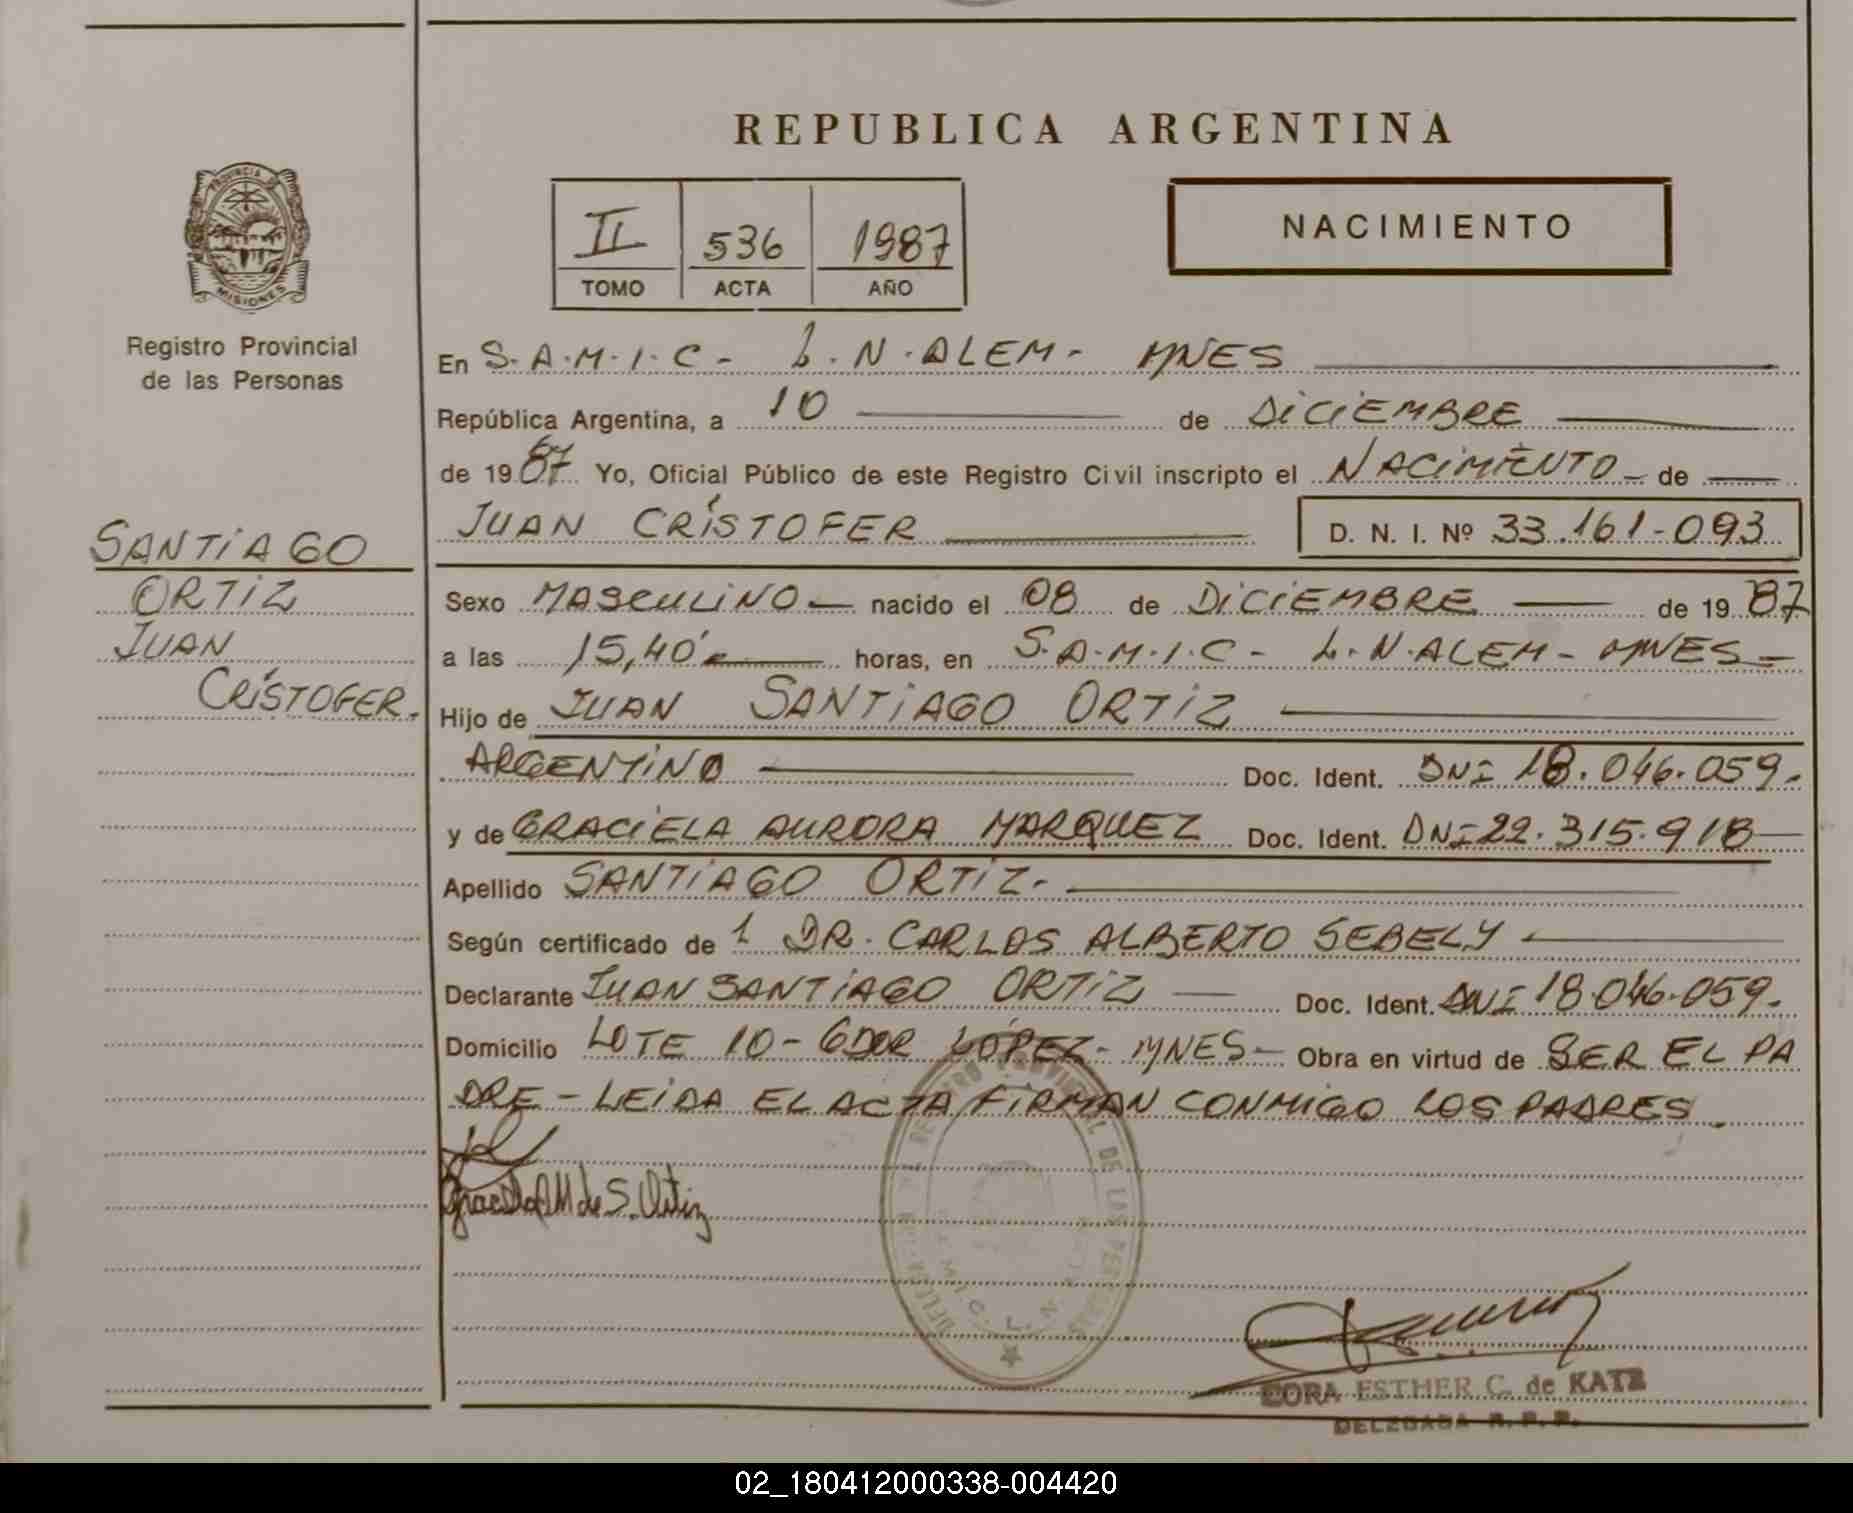 REPUBLICA ARGENTINA
PROVINCIA DE
MISIONES
Registro Provincial
de las Personas
II 536 1987
TOMO ACTA AÑO
NACIMIENTO
En S.A.M.I.C- L.N.ALEM- MNES
República Argentina, a 10 de DICIEMBRE
de 1987 Yo, Oficial Público de este Registro Civil inscripto el NACIMIENTO de
JUAN CRISTOFER D. N. I. Nº 33.161-093
SANTIAGO
ORTIZ
JUAN
CRISTOFER.
Sexo MASCULINO nacido el 08 de DICIEMBRE de 1987
a las 15,40' horas, en S.A.M.I.C- L.N.ALEM- MNES-
Hijo de JUAN SANTIAGO ORTIZ
ARGENTINO Doc. Ident. DNI 18.046.059.
y de GRACIELA AURORA MARQUEZ Doc. Ident. DNI 22.315.918
Apellido SANTIAGO ORTIZ.
Según certificado de 1 DR. CARLOS ALBERTO SEBELY
Declarante JUAN SANTIAGO ORTIZ Doc. Ident. DNI 18.046.059.
Domicilio LOTE 10- GDOR LÓPEZ- MNES- Obra en virtud de SER EL PA
DRE - LEIDA EL ACTA FIRMAN CONMIGO LOS PADRES.
Graciela M de S. Ortiz
REGISTRO PROVINCIAL DE LAS PERSONAS
CORA ESTHER C. de KATZ
DELEGADA R. P. P.
02_180412000338-004420